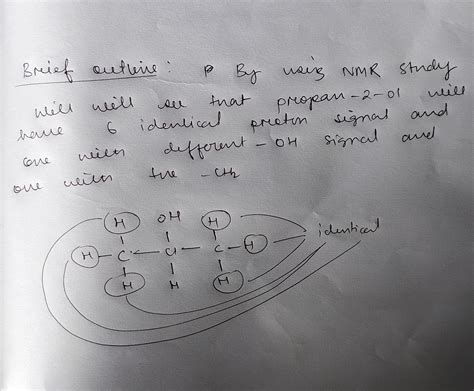 Brief outline: P By using NMR study
will will see that propan-2-ol will
have 6 identical proton signal and
one with different -OH signal and
one with the -CH
H OH H
H - C - C - C - H identical
H H H